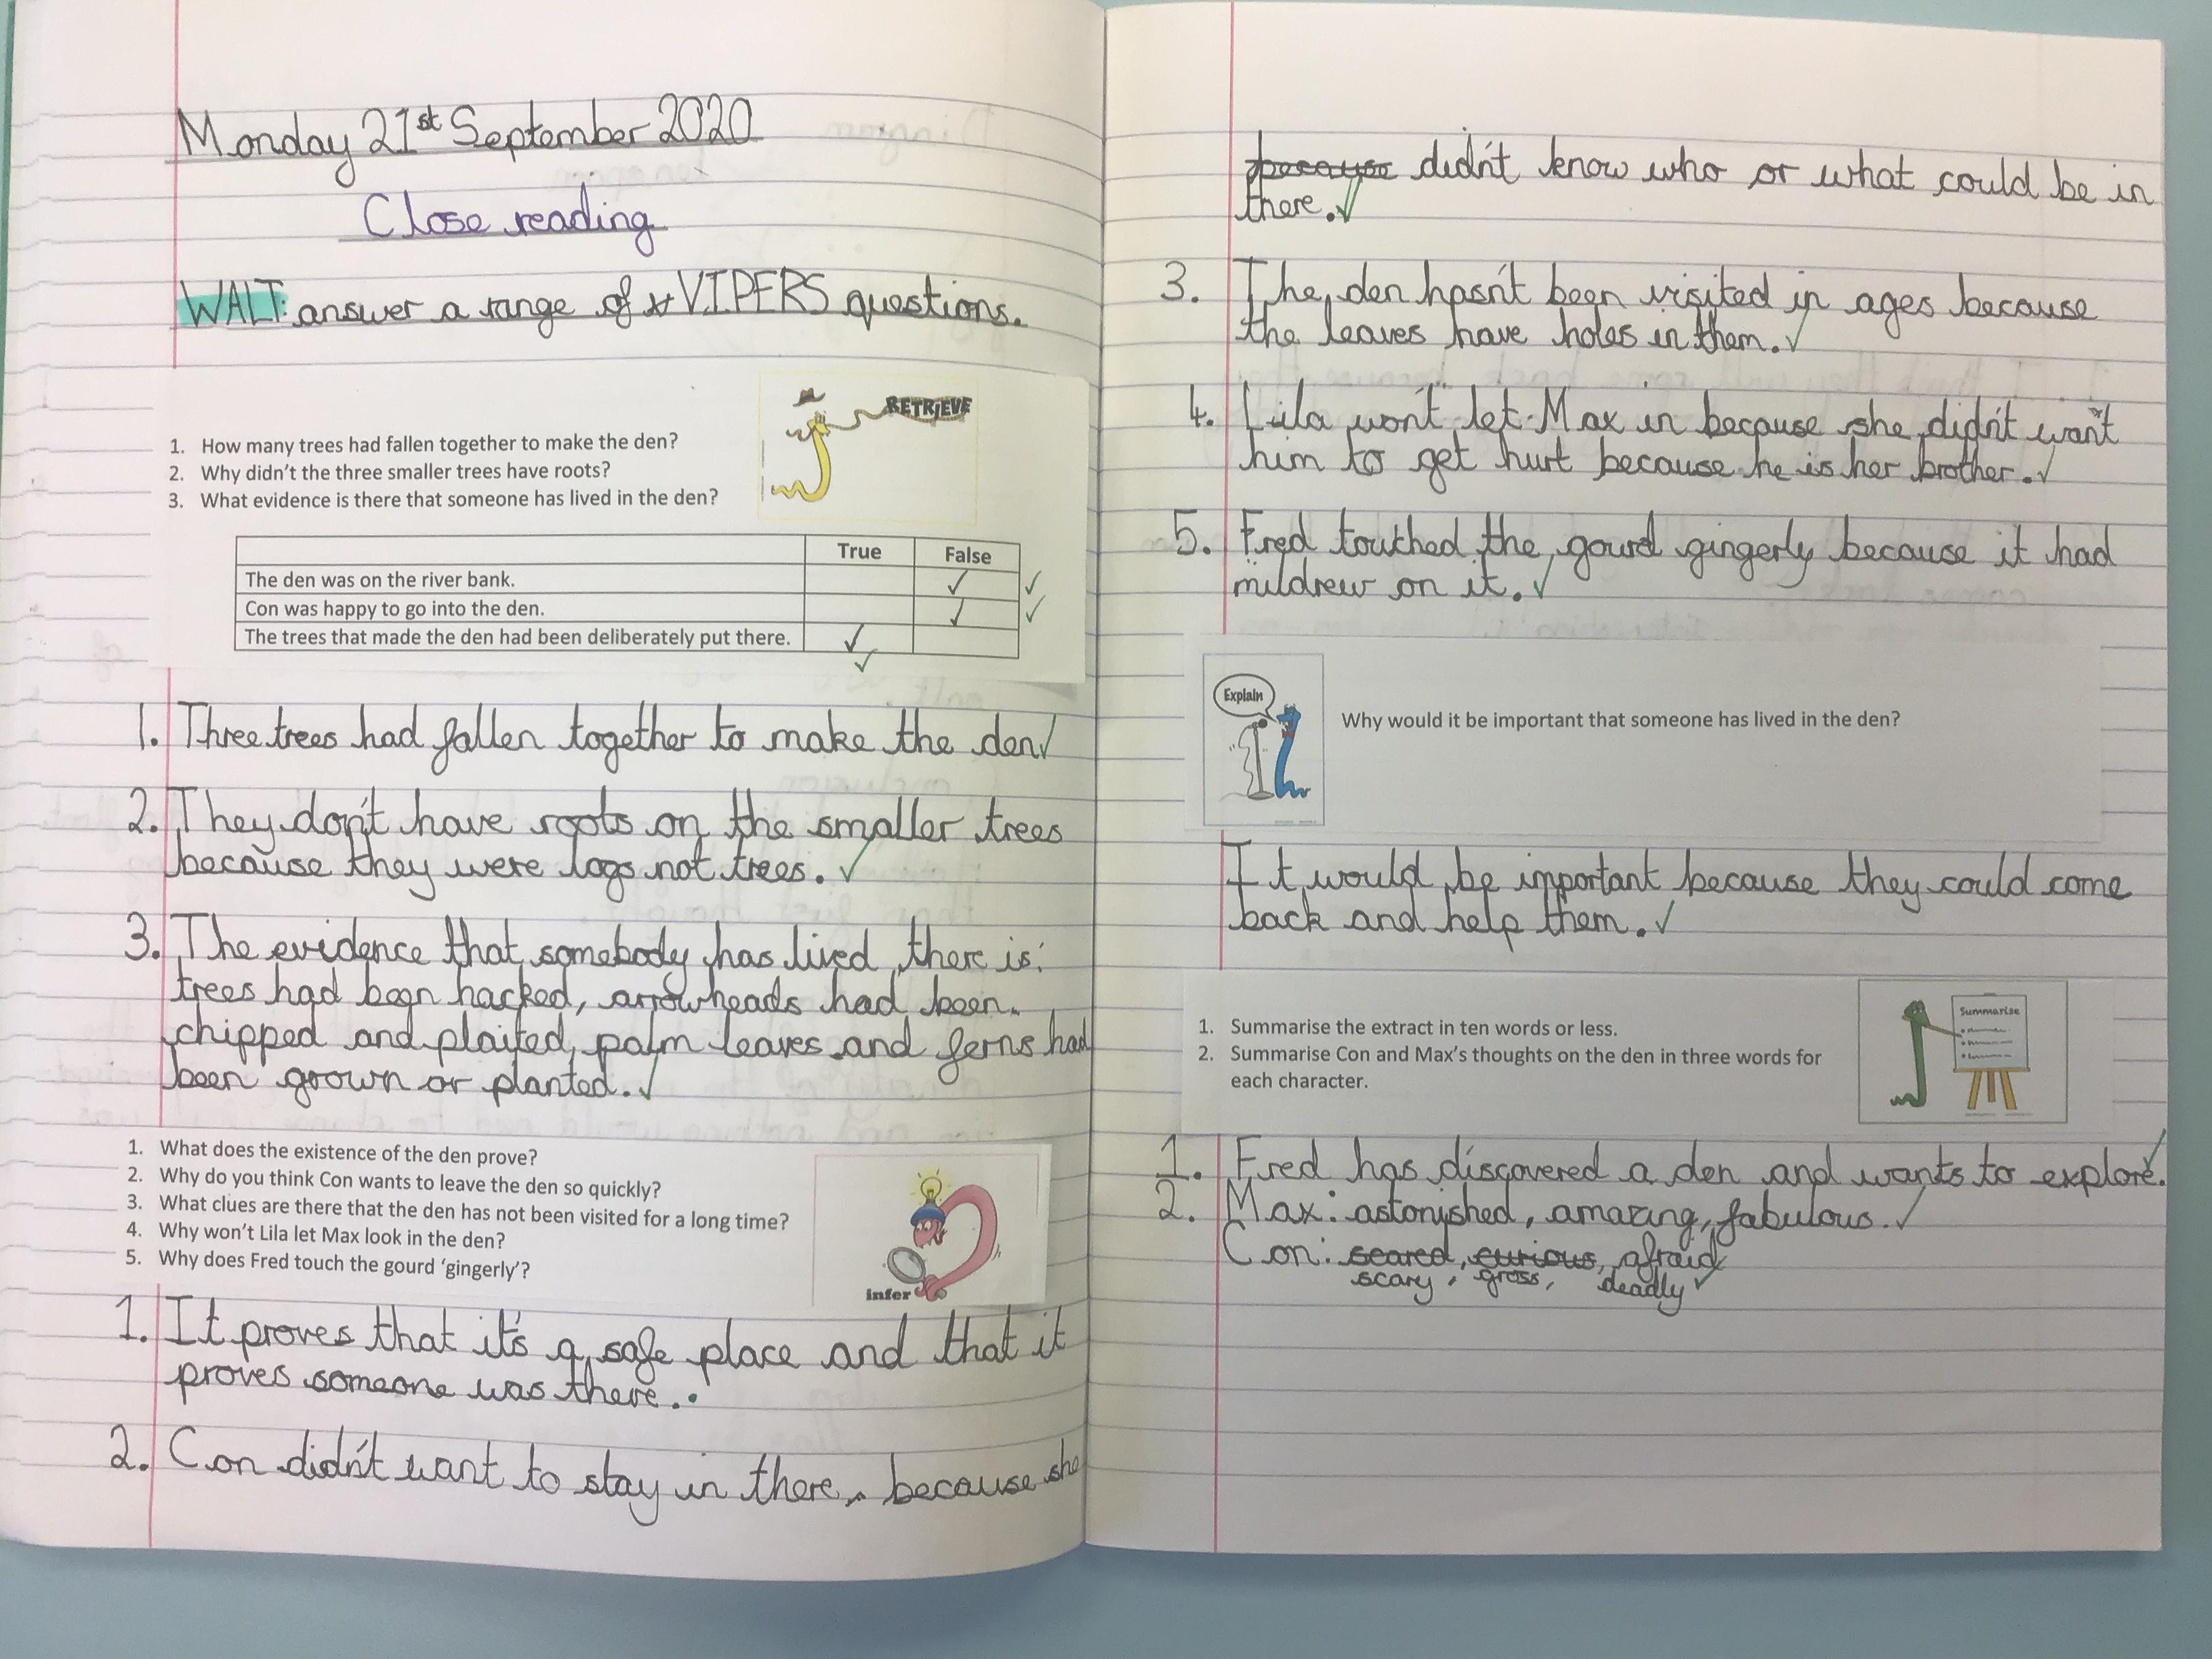 Monday 21st September 2020
Close reading
WALT: answer a range of VIPERS questions.
RETRIEVE
1. How many trees had fallen together to make the den?
2. Why didn't the three smaller trees have roots?
3. What evidence is there that someone has lived in the den?
True False
The den was on the river bank. ✓ ✓
Con was happy to go into the den. ✓ ✓
The trees that made the den had been deliberately put there. ✓
✓
1. Three trees had fallen together to make the den ✓
2. They don't have roots on the smaller trees
because they were logs not trees. ✓
3. The evidence that somebody has lived there is:
trees had been hacked, arrowheads had been
chipped and plaited, palm leaves and ferns had
been grown or planted. ✓
1. What does the existence of the den prove?
2. Why do you think Con wants to leave the den so quickly?
3. What clues are there that the den has not been visited for a long time?
4. Why won't Lila let Max look in the den?
5. Why does Fred touch the gourd 'gingerly'?
infer
1. It proves that it's a safe place and that it
proves someone was there..
2. Con didn't want to stay in there, because she
because didn't know who or what could be in
there. ✓
3. The den hasn't been visited in ages because
the leaves have holes in them. ✓
4. Lila won't let Max in because she didn't want
him to get hurt because he is her brother. ✓
5. Fred touched the gourd gingerly because it had
mildrew on it. ✓
Explain
Why would it be important that someone has lived in the den?
It would be important because they could come
back and help them. ✓
1. Summarise the extract in ten words or less.
2. Summarise Con and Max's thoughts on the den in three words for
each character.
Summarise
1. Fred has discovered a den and wants to explore. ✓
2. Max: astonished, amazing, fabulous. ✓
Con: scared, curious, afraid
scary, gross, deadly ✓